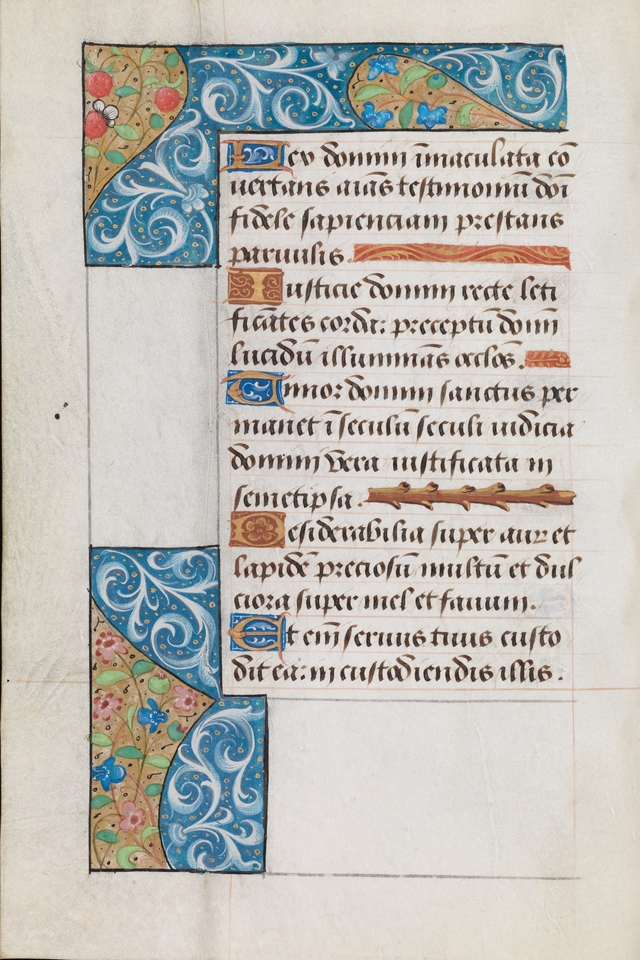 Lex domini īmaculata cō
uertens aīas testimoniū dn̄i
fidele sapienciam prestans
paruulis.
Iusticie domini recte leti
ficātes corda: preceptū domī
lucidū illuminās oculos.
Timor domini sanctus per
manet ī seculū seculi iudicia
domini vera iustificata in
semetipsa.
Desiderabilia super aurū et
lapidē preciosū multū et dul
ciora super mel et fauum.
Et em̄ seruus tuus custo
dit ea: in custodiendis illis.